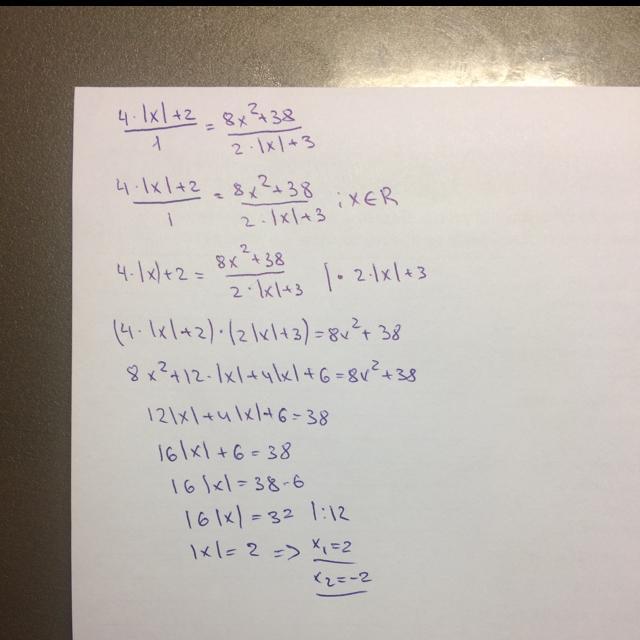 4·|x|+2 / 1 = 8x²+38 / 2·|x|+3
4·|x|+2 / 1 = 8x²+38 / 2·|x|+3 ; x∈R
4·|x|+2 = 8x²+38 / 2·|x|+3 |· 2·|x|+3
(4·|x|+2)·(2|x|+3)=8x²+38
8x²+12·|x|+4|x|+6=8x²+38
12|x|+4|x|+6=38
16|x|+6=38
16|x|=38-6
16|x|=32 |:12
|x|=2 => x₁=2
x₂=-2